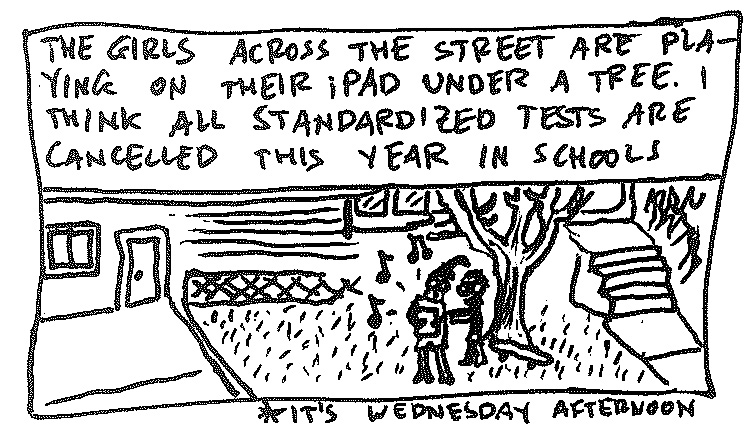 THE GIRLS ACROSS THE STREET ARE PLA-
YING ON THEIR iPAD UNDER A TREE. I
THINK ALL STANDARDIZED TESTS ARE
CANCELLED THIS YEAR IN SCHOOLS
*IT'S WEDNESDAY AFTERNOON